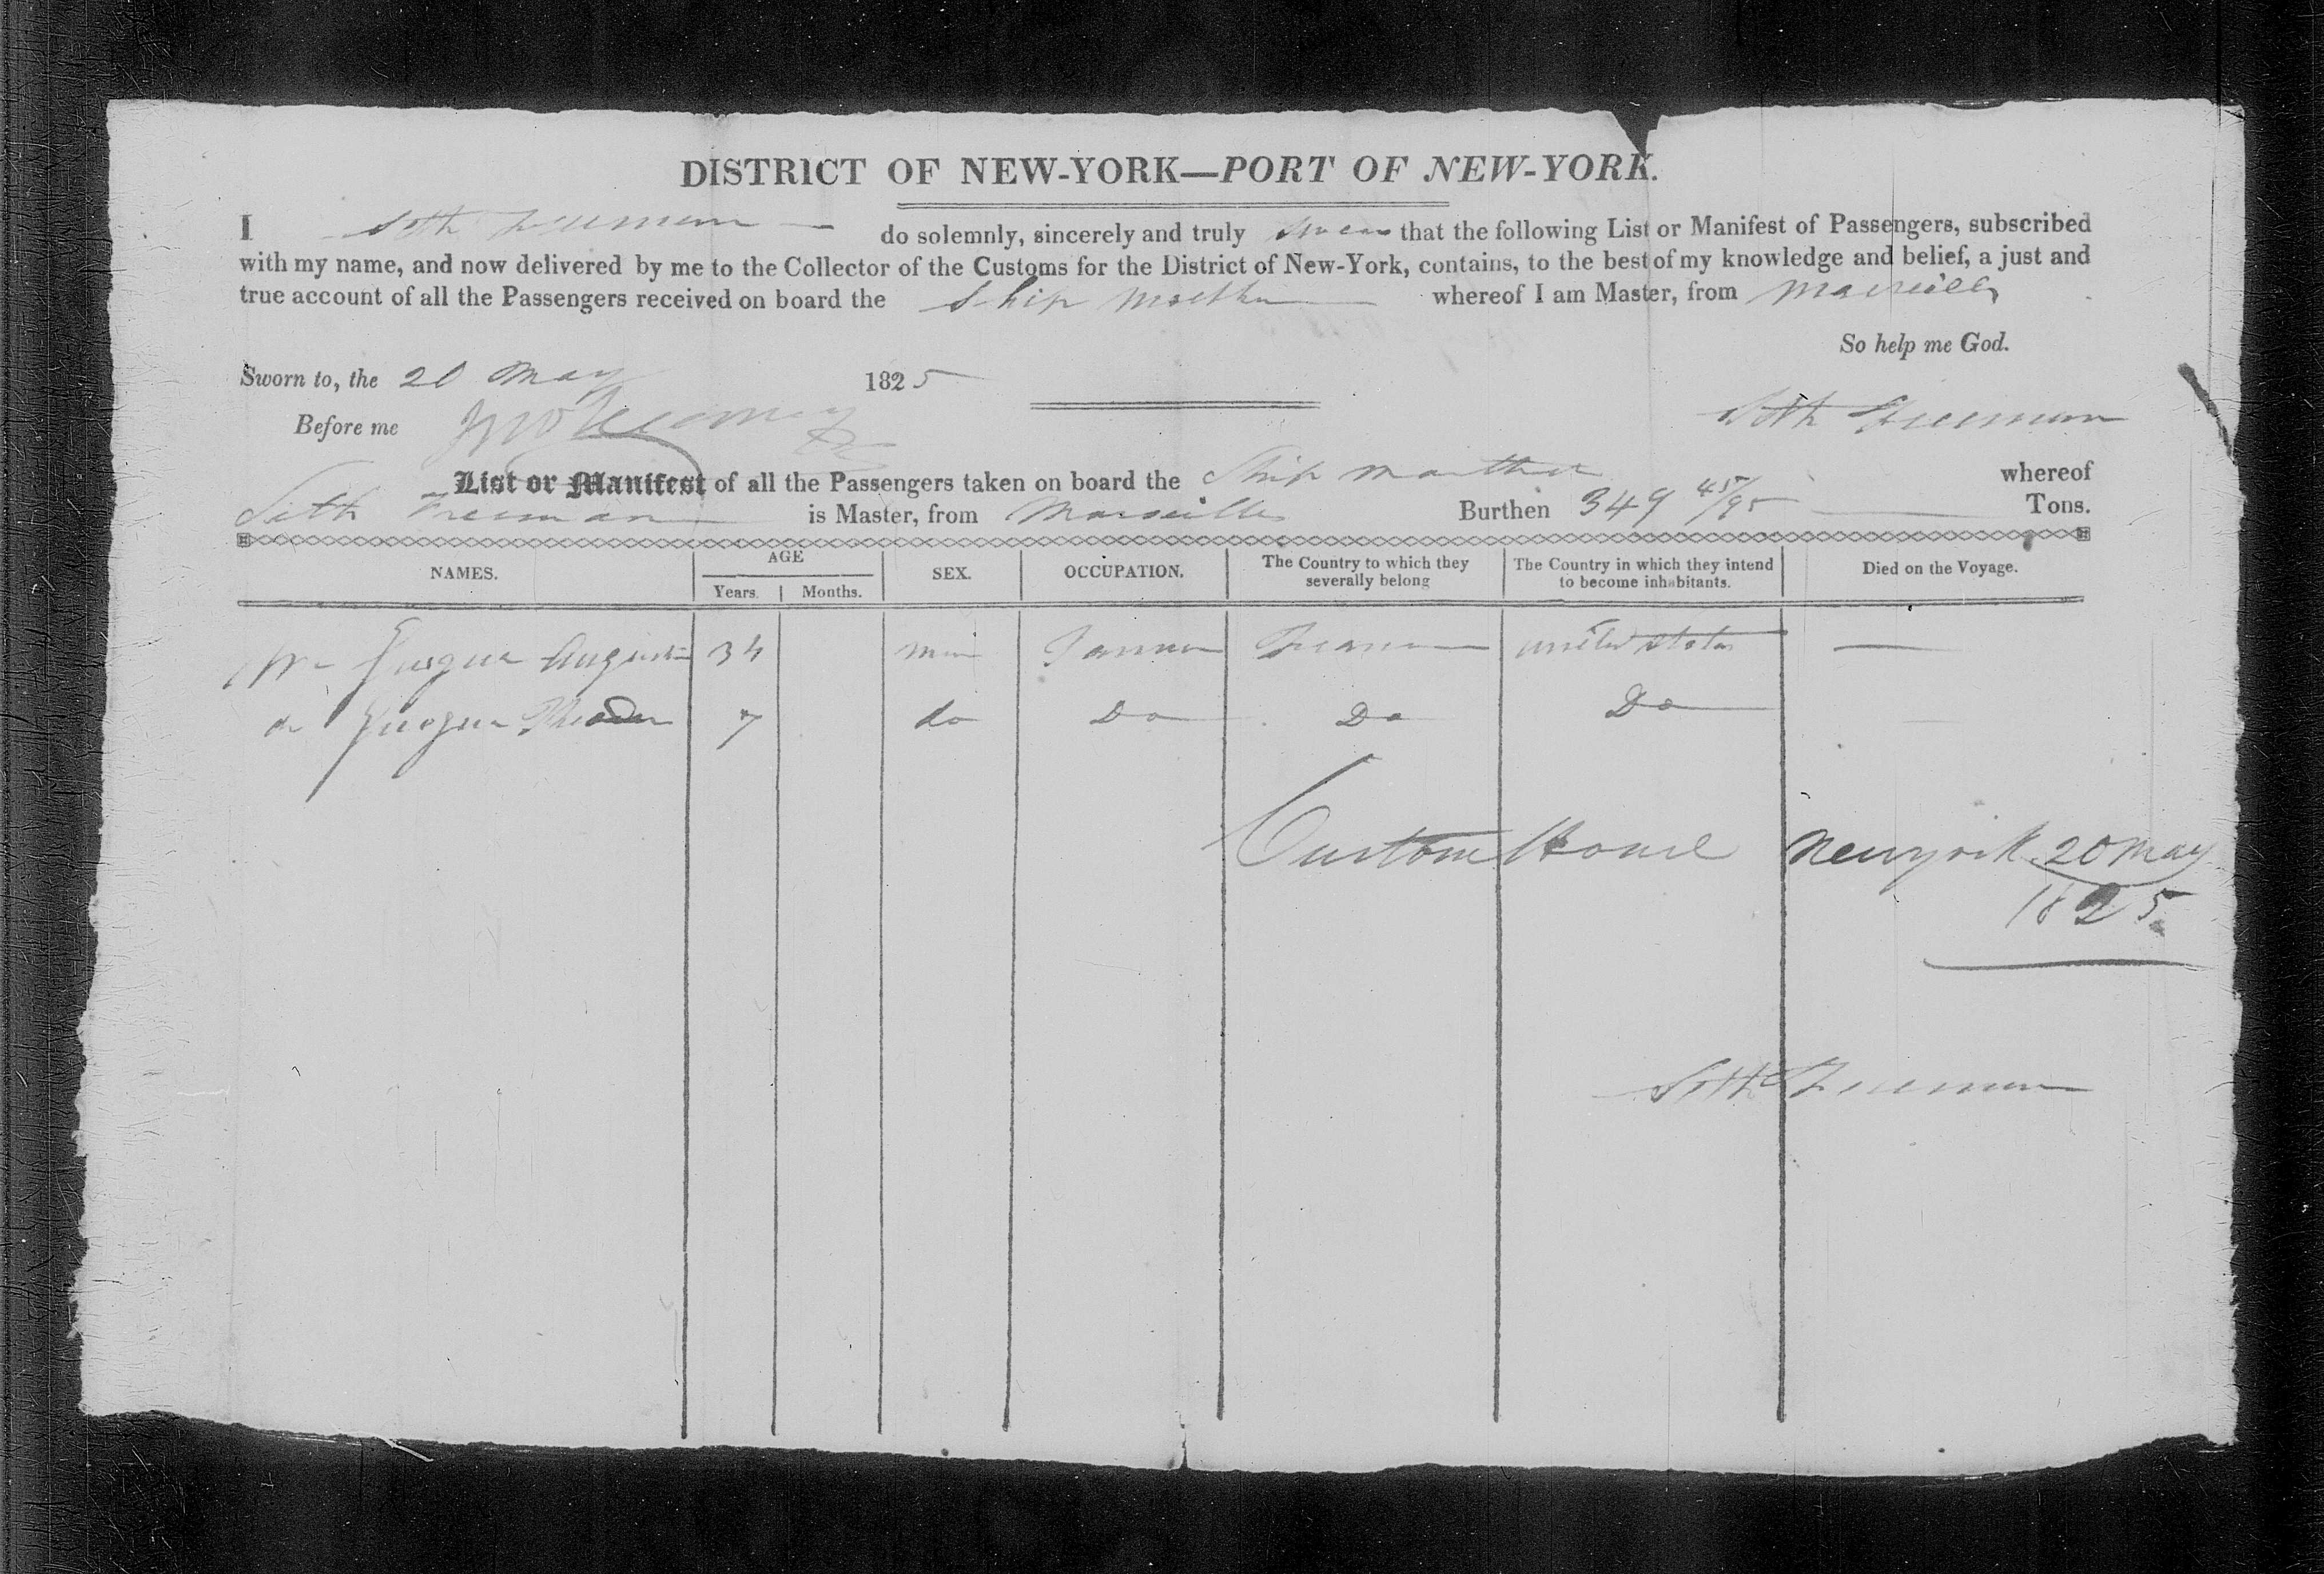 DISTRICT OF NEW-YORK—PORT OF NEW-YORK.
I Seth Freeman do solemnly, sincerely and truly swear that the following List or Manifest of Passengers, subscribed
with my name, and now delivered by me to the Collector of the Customs for the District of New-York, contains, to the best of my knowledge and belief, a just and
true account of all the Passengers received on board the Ship Martha whereof I am Master, from Marseilles
So help me God.
Sworn to, the 20 May 1825
Seth Freeman
Before me
List or Manifest of all the Passengers taken on board the Ship Martha whereof
Seth Freeman is Master, from Marseilles Burthen 349 45/95 Tons.
NAMES. AGE Years. Months. SEX. OCCUPATION. The Country to which they severally belong The Country in which they intend to become inhabitants. Died on the Voyage.
Mr Augustin 34 man France United States —
do 7 do Do Do Do —
Custom House New york 20 May
1825
Seth Freeman